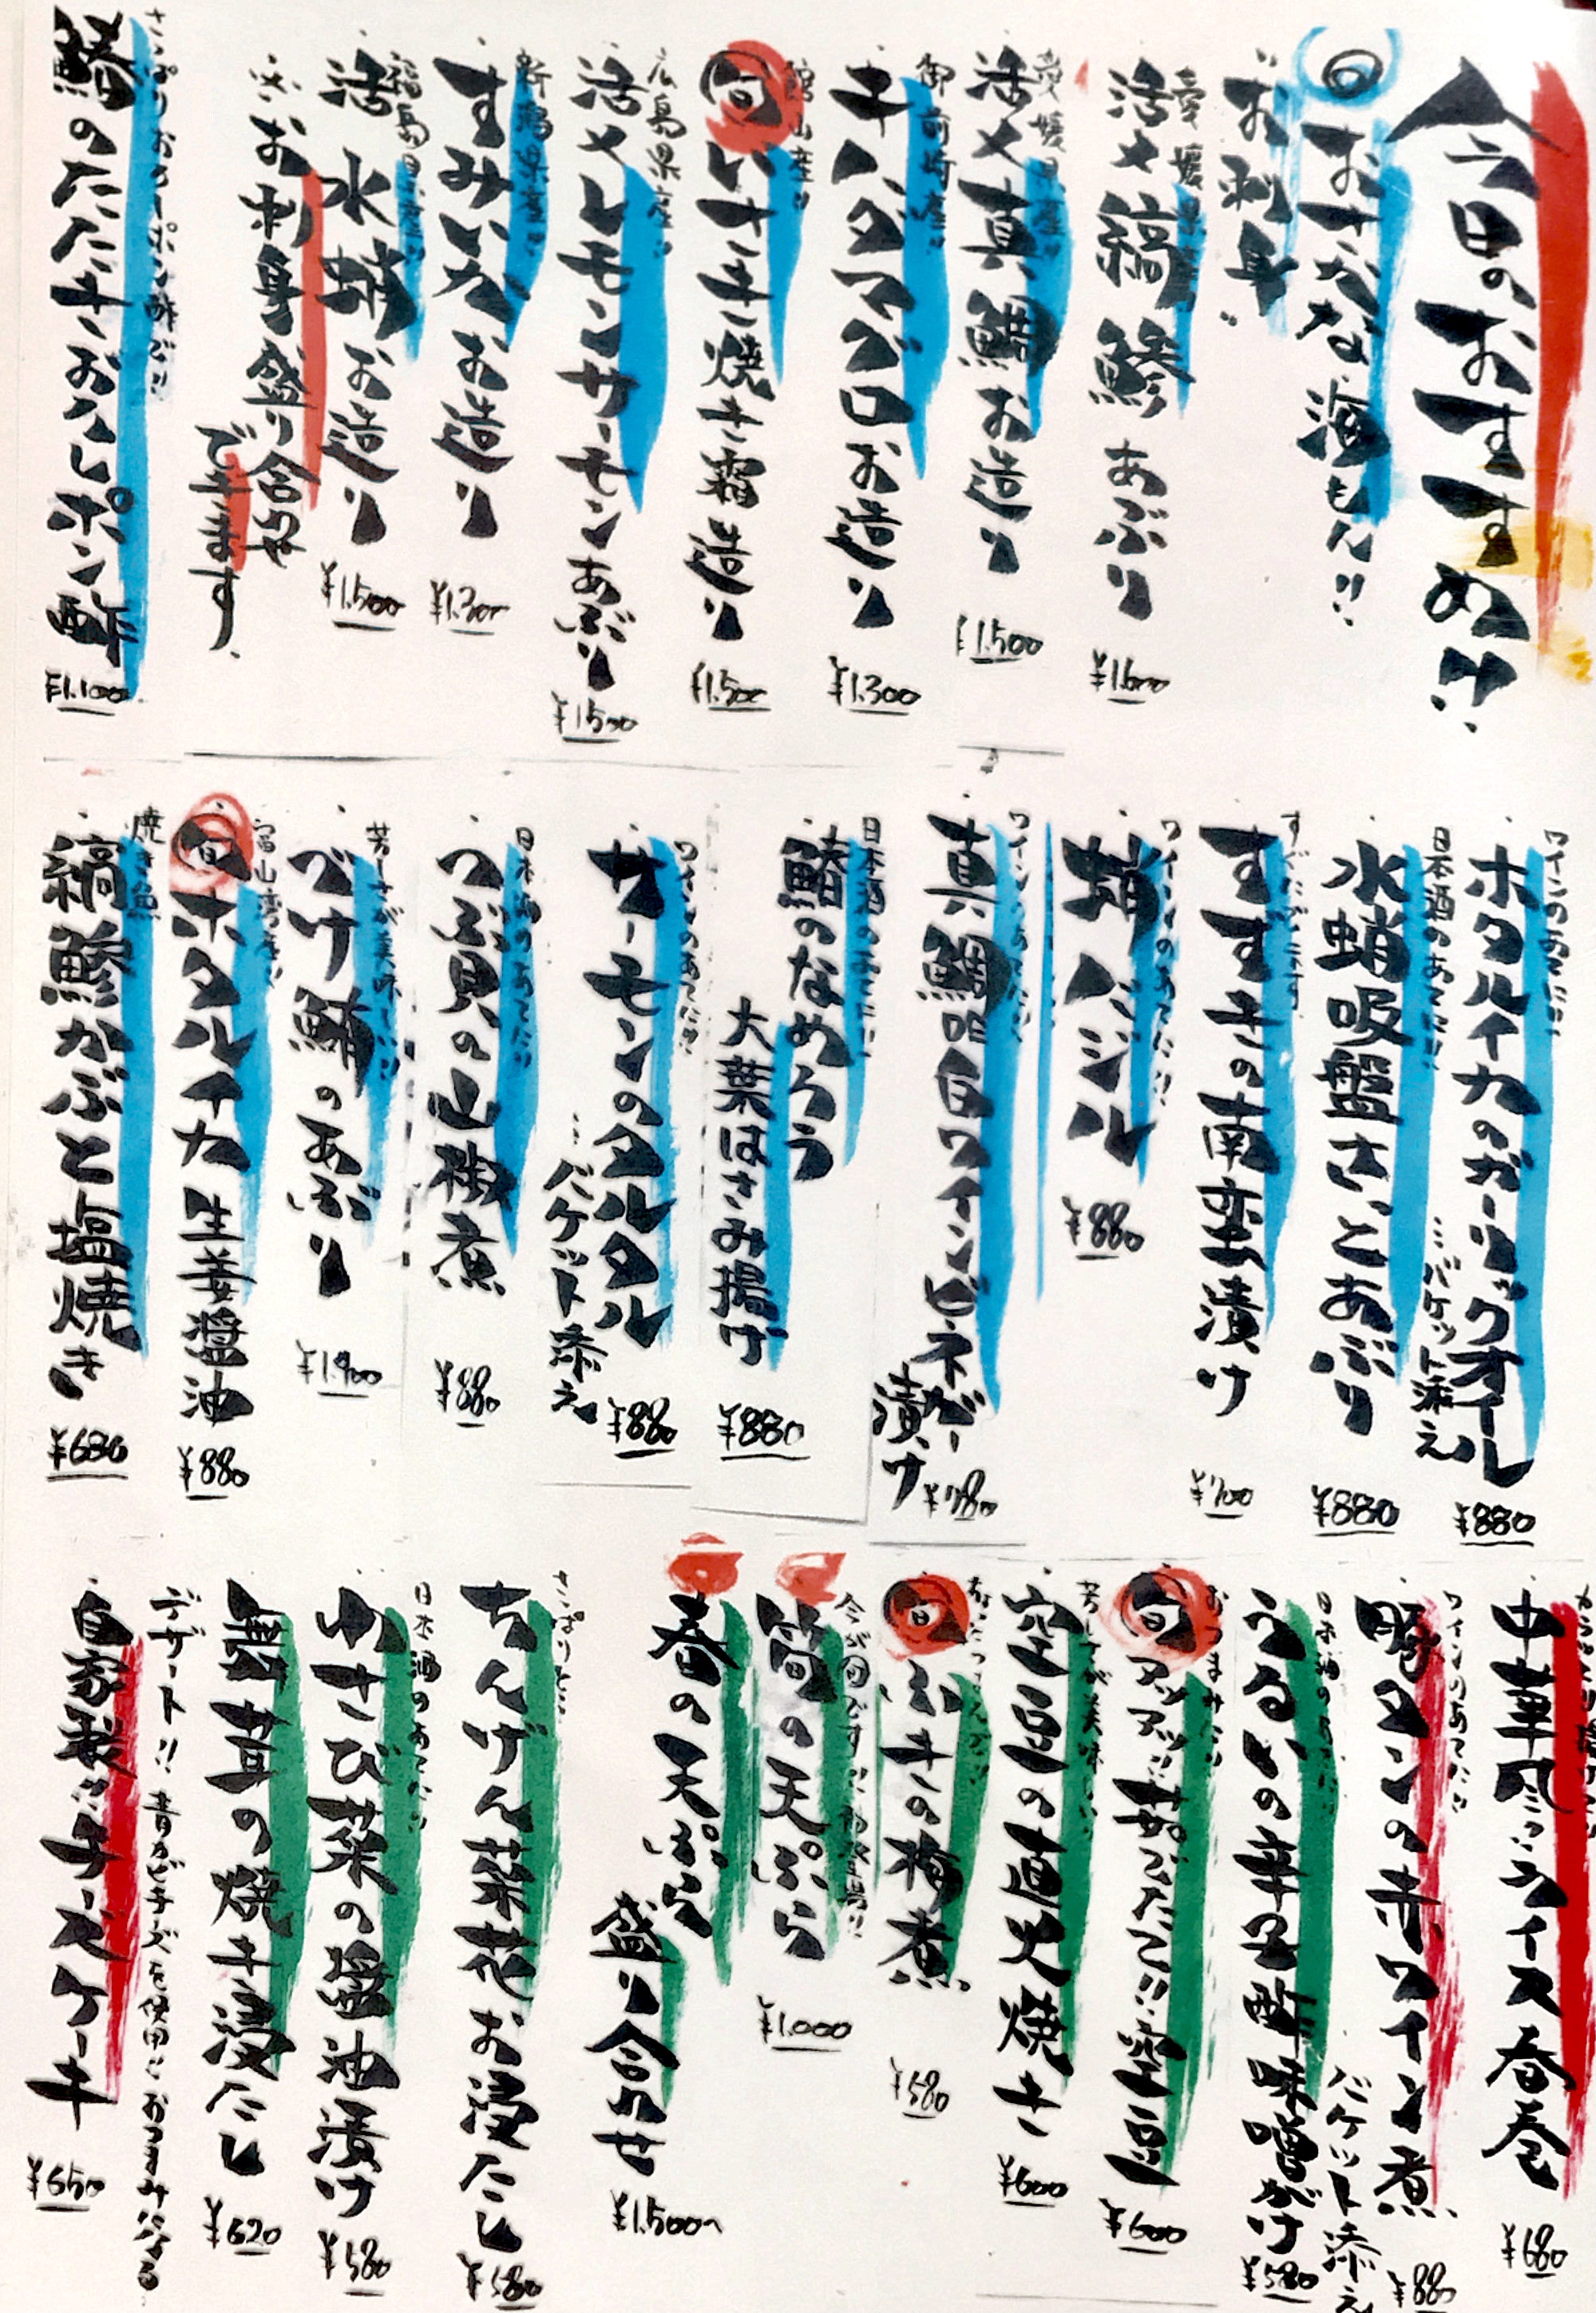 今日のおすすめ!!
旬おさかな海もん!!
お刺身
愛媛県産
活〆縞鯵 あぶり ¥1.600
愛媛県産!!
活〆真鯛お造り ¥1.500
御前崎産!!
キハダマグロお造り ¥1.300
館山産!!
旬いさき焼き霜造り ¥1.500
広島県産!!
活〆レモンサーモンあぶり ¥1500
新潟県産!!
すみいかお造り ¥1.300
福島県産!!
活水蛸お造り ¥1.500
※お刺身盛り合わせ
できます。
さっぱりおろしポン酢で!!
鰆のたたきおろしポン酢 ¥1.100
ワインのあてに!!
ホタルイカのガーリックオイル ¥880
…バケット添え
日本酒のあてに!!
水蛸吸盤さっとあぶり ¥880
すぐにでます
すずきの南蛮漬け ¥700
ワインのあてに!!
蛸バジル ¥880
ワインのあてに!!
真鯛白ワインビネガー漬け ¥780
日本酒のあてに!!
鰆のなめろう
大葉はさみ揚げ ¥880
ワインのあてに!!
サーモンのタルタル ¥880
…バケット添え
日本酒のあてに!!
つぶ貝の山椒煮 ¥880
芳ばしさが美味しい!!
づけ鮪のあぶり ¥1.400
富山湾産!!
旬ホタルイカ生姜醤油 ¥880
焼き魚
縞鯵かぶと塩焼き ¥680
中華風!!ライス春巻 ¥680
ワインのあてに!!
豚タンの赤ワイン煮 ¥880
バケット添え
日本酒のあてに!!
うるいの辛子酢味噌がけ ¥580
おつまみに!!
旬アツアツ!!茹でたて!!空豆 ¥600
芳ばしさが美味しい!!
空豆の直火焼き ¥600
旬ふきの梅煮 ¥580
今が旬です!!
筍の天ぷら ¥1.000
春の天ぷら
盛り合わせ ¥1.500〜
さっぱりと!!
ちんげん菜花お浸たし ¥580
日本酒のあてに!!
わさび菜の醤油漬け ¥580
舞茸の焼き浸たし ¥620
デザート!! 青カビチーズを使用しおつまみになる
自家製!!チーズケーキ ¥650